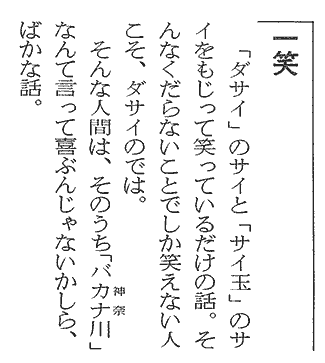 一笑
「ダサイ」のサイと「サイ玉」のサ
イをもじって笑っているだけの話。そ
んなくだらないことでしか笑えない人
こそ、ダサイのでは。
そんな人間は、そのうち「バカナ川」
神奈
なんて言って喜ぶんじゃないかしら、
ばかな話。